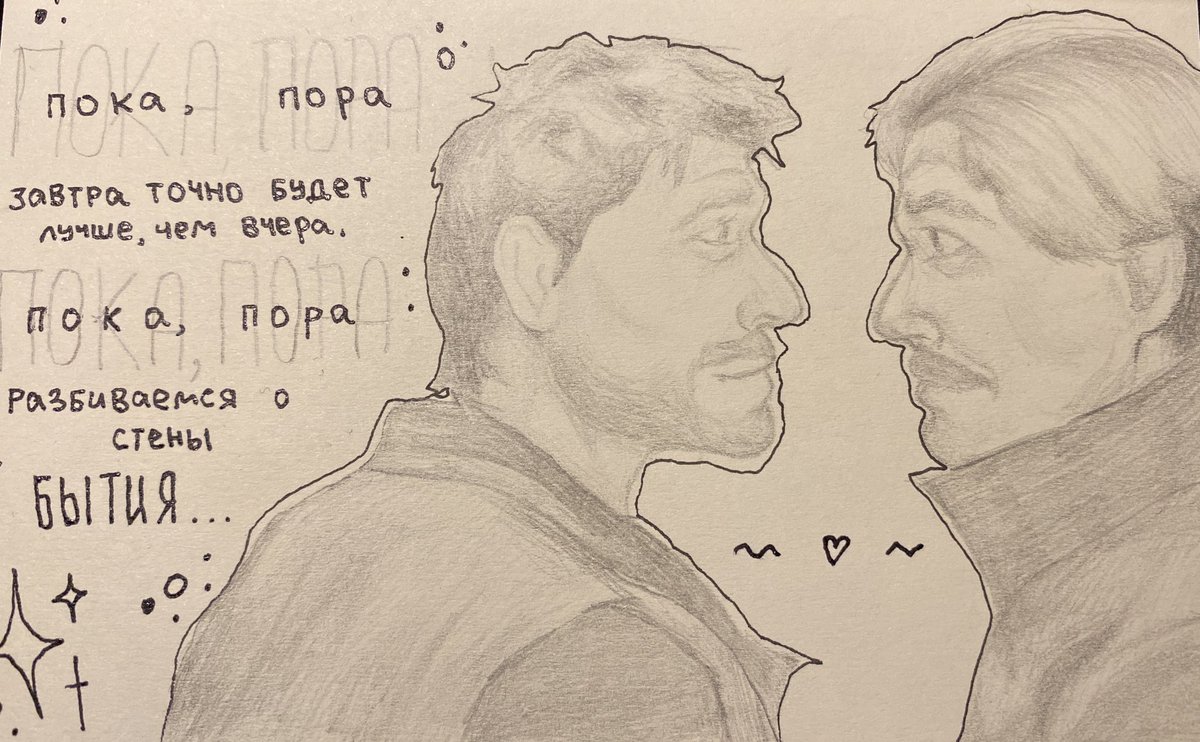 пока, пора
завтра точно будет
лучше, чем вчера.
пока, пора
разбиваемся о
стены
БЫТИЯ...